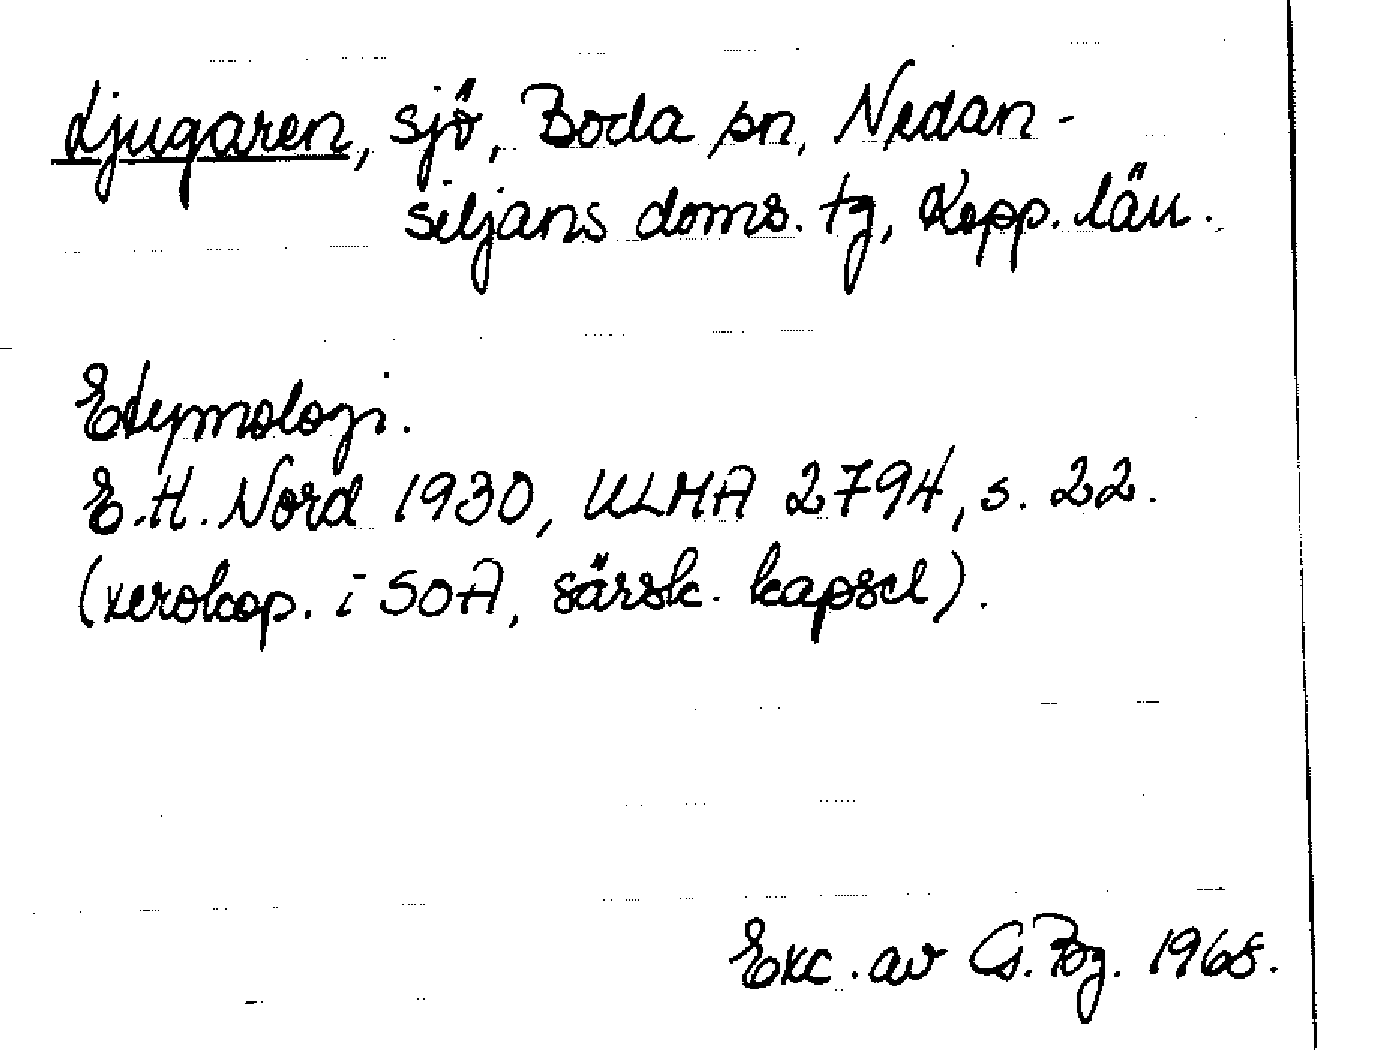 Ljugaren, sjö, Boda sn, Nedan-
siljans doms. tg, Kopp. län.
Etymologi.
E.H. Nord 1930, ULMA 2794, s. 22.
(xerokop. i SOA, särsk. kapsel).
Exc. av G. Bg. 1968.